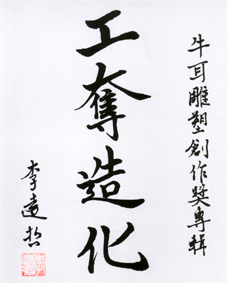 牛耳雕塑創作獎專輯
工奪造化
李遠哲